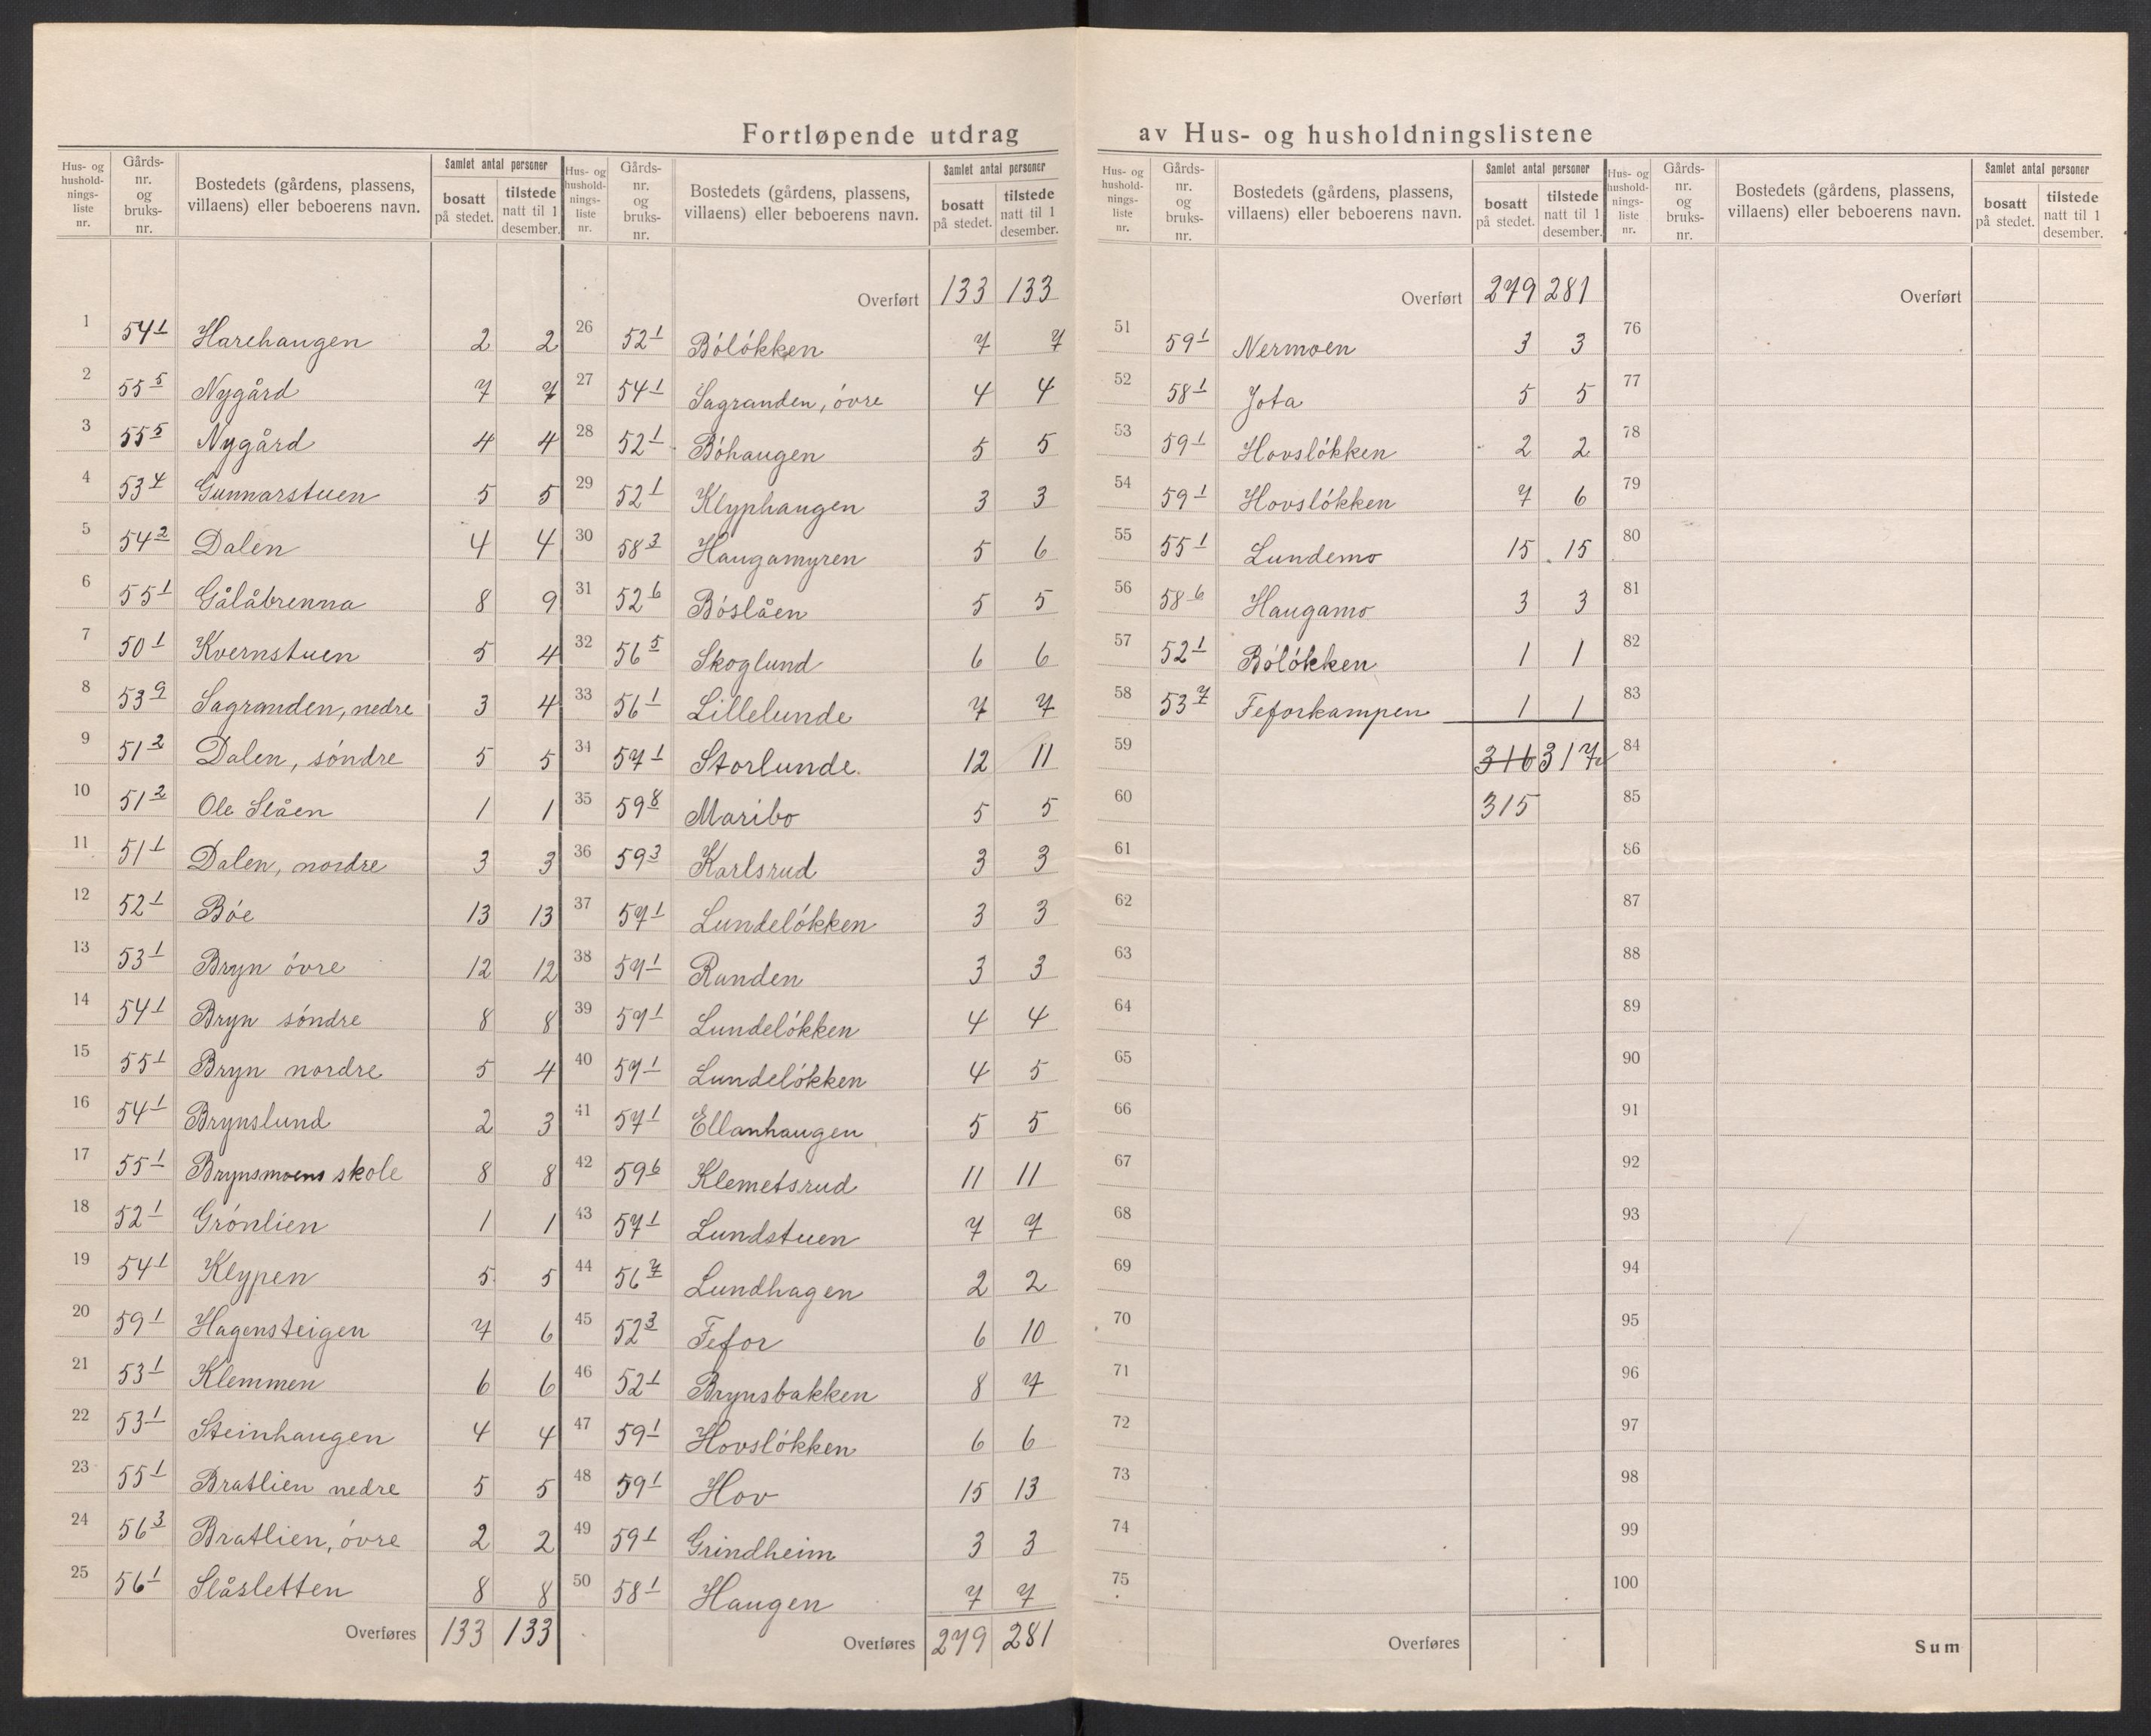 Fortløpende utdrag av Hus- og husholdningslistene
Hus- og husholdningsliste nr. | Gårds- nr. og bruks- nr. | Bostedets (gårdens, plassens, villaens) eller beboerens navn. | Samlet antal personer | bosatt på stedet. | tilstede natt til 1 desember.
1 54 1 Harehaugen 2 2
2 55 5 Nygård 7 7
3 55 5 Nygård 4 4
4 53 4 Gunnarstuen 5 5
5 54 2 Dalen 4 4
6 55 1 Gålåbrenna 8 9
7 50 1 Kvernstuen 5 4
8 53 9 Sagranden, nedre 3 4
9 51 2 Dalen, söndre 5 5
10 51 2 Ole Slåen 1 1
11 51 1 Dalen, nordre 3 3
12 52 1 Böe 13 13
13 53 1 Bryn övre 12 12
14 54 1 Bryn söndre 8 8
15 55 1 Bryn nordre 5 4
16 54 1 Brynslund 2 3
17 55 1 Brynsmoens skole 8 8
18 52 1 Grönlien 1 1
19 54 1 Klypen 5 5
20 59 1 Hagensteigen 7 6
21 53 1 Klemmen 6 6
22 53 1 Steinhaugen 4 4
23 55 1 Bratlien nedre 5 5
24 56 3 Bratlien, övre 2 2
25 56 1 Slåsletten 8 8
Overføres 133 133
Hus- og husholdningsliste nr. | Gårds- nr. og bruks- nr. | Bostedets (gårdens, plassens, villaens) eller beboerens navn. | Samlet antal personer | bosatt på stedet. | tilstede natt til 1 desember.
Overført 133 133
26 52 1 Bölökken 7 7
27 54 1 Sagranden, övre 4 4
28 52 1 Böhaugen 5 5
29 52 1 Klyphaugen 3 3
30 58 3 Haugamyren 5 6
31 52 6 Böslåen 5 5
32 56 5 Skoglund 6 6
33 56 1 Lillelunde 7 7
34 57 1 Storlunde 12 11
35 59 8 Maribo 5 5
36 59 3 Karlsrud 3 3
37 57 1 Lundelökken 3 3
38 57 1 Randen 3 3
39 57 1 Lundelökken 4 4
40 57 1 Lundelökken 4 5
41 57 1 Ellanhaugen 5 5
42 59 6 Klemetsrud 11 11
43 57 1 Lundstuen 7 7
44 56 7 Lundhagen 2 2
45 52 3 Fefor 6 10
46 52 1 Brynsbakken 8 7
47 59 1 Hovslökken 6 6
48 59 1 Hov 15 13
49 59 1 Grindheim 3 3
50 58 1 Haugen 7 7
Overføres 279 281
Hus- og husholdningsliste nr. | Gårds- nr. og bruks- nr. | Bostedets (gårdens, plassens, villaens) eller beboerens navn. | Samlet antal personer | bosatt på stedet. | tilstede natt til 1 desember.
Overført 279 281
51 59 1 Nermoen 3 3
52 58 1 Jota 5 5
53 59 1 Hovslökken 2 2
54 59 1 Hovslökken 7 6
55 55 1 Lundemo 15 15
56 58 6 Haugamo 3 3
57 52 1 Bölökken 1 1
58 53 7 Feforkampen 1 1
59 316 317
60 315
61
62
63
64
65
66
67
68
69
70
71
72
73
74
75
Overføres
Hus- og husholdningsliste nr. | Gårds- nr. og bruks- nr. | Bostedets (gårdens, plassens, villaens) eller beboerens navn. | Samlet antal personer | bosatt på stedet. | tilstede natt til 1 desember.
Overført
76
77
78
79
80
81
82
83
84
85
86
87
88
89
90
91
92
93
94
95
96
97
98
99
100
Sum